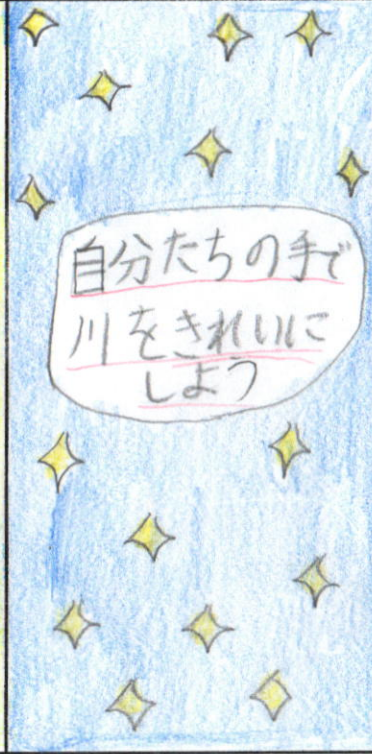 自分たちの手で
川をきれいに
しよう